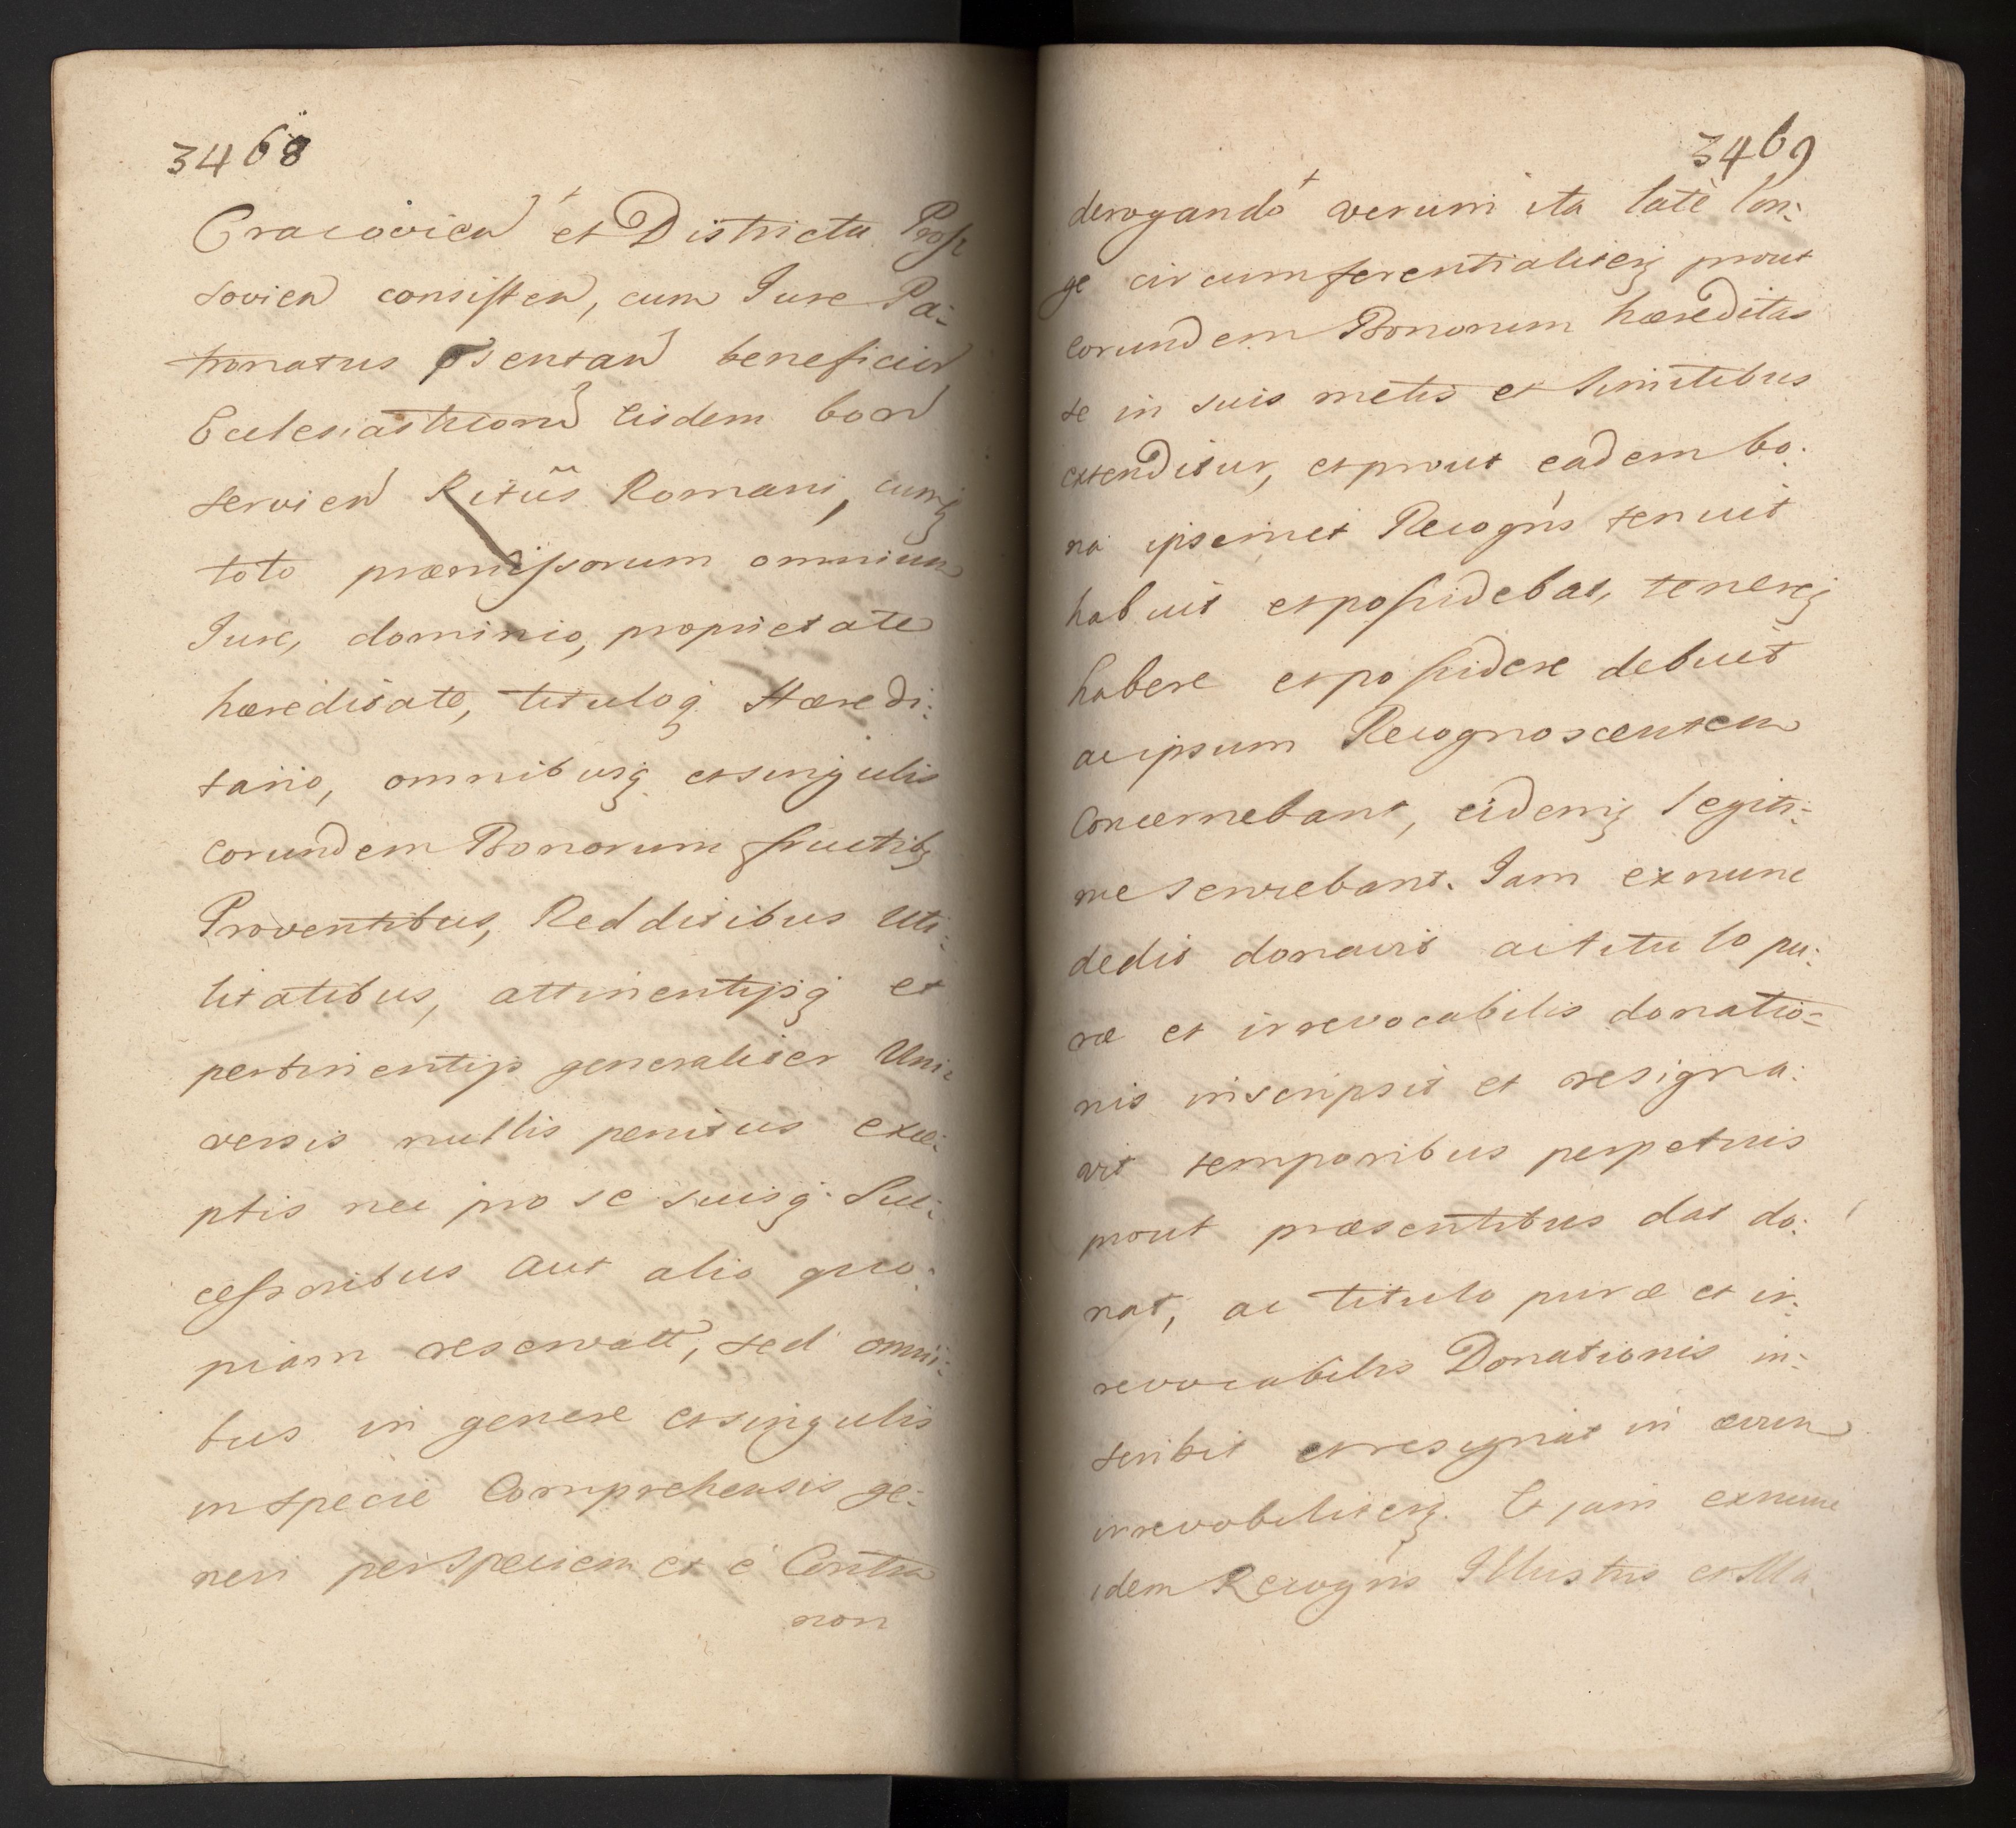 3468
Cracovien et Districtu Pros
sovien consisten, cum Jure Pa:
tronatus Psentan beneficior
Ecclesiasticorū Eisdem bon
servien Ritûs Romani, cumq
toto præmissorum omnium
Jure, dominio, proprietate
hæreditate, tituloq Hæredi:
tario, omnibusq et singulis
eorundem Bonorum fructibq
Proventibus, Redditibus Uti:
litatibus, attinentijsq et
pertinentijs generaliter Uni:
versis nullis penitus exce:
ptis nec pro se suisq Suc:
cessoribus aut alio quo:
piam reservatt, sed omni:
bus in genere et singulis
in specie Comprehensis ge:
neri per speciem et è Contra
non
3469
derogando verum ita latè lon:
ge circumferentialiterq prout
eorundem Bonorum hæreditas
se in suis metis et limitibus
extenditur, et prout eadem bo:
na ipsemet Recogn̄s tenuit
habuit et possidebat, tenereq
habere et possidere debuit
ac ipsum Recognoscentem
Concernebant, eidemq legiti:
me serviebant. Jam ex nunc
dedit donavit ac titulo pu:
ræ et irrevocabilis donatio=
nis inscripsit et resigna:
vit temporibus perpetuis
prout præsentibus dat do:
nat, ac titulo puræ et ir:
revocabilis Donationis in:
scribit et resignat in ævum
irrevobiliterq. Et jam ex nunc
idem Recogn̄s Illustris et Ma: